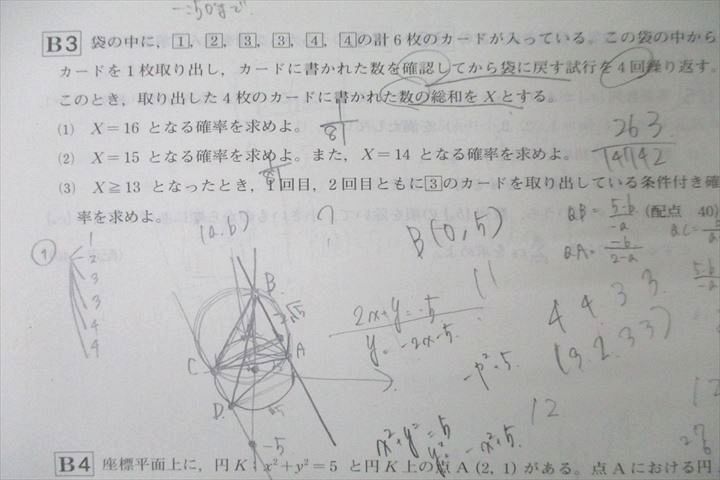 B3 袋の中に，1，2，3，3，4，4の計6枚のカードが入っている。この袋の中から
カードを1枚取り出し，カードに書かれた数を確認してから袋に戻す試行を4回繰り返す。
このとき，取り出した4枚のカードに書かれた数の総和をXとする。
(1) X＝16 となる確率を求めよ。
1/81
263
(2) X＝15 となる確率を求めよ。また，X＝14 となる確率を求めよ。
(3) X≧13 となったとき，1回目，2回目ともに3のカードを取り出している条件付き確
率を求めよ。
(配点 40)
(a,b)
B(0,5)
QB= 5-b/-a
QA= -b/2-a
①
1
2
3
3
4
4
B
2√5
A
C
D
-5
2x+y=-5
y=-2x-5
11
4 4 3 3
(3.2.33)
12
x²+y²=5
B4 座標平面上に，円K：x²＋y²＝5 と円K上の点A(2, 1)がある。点Aにおける円